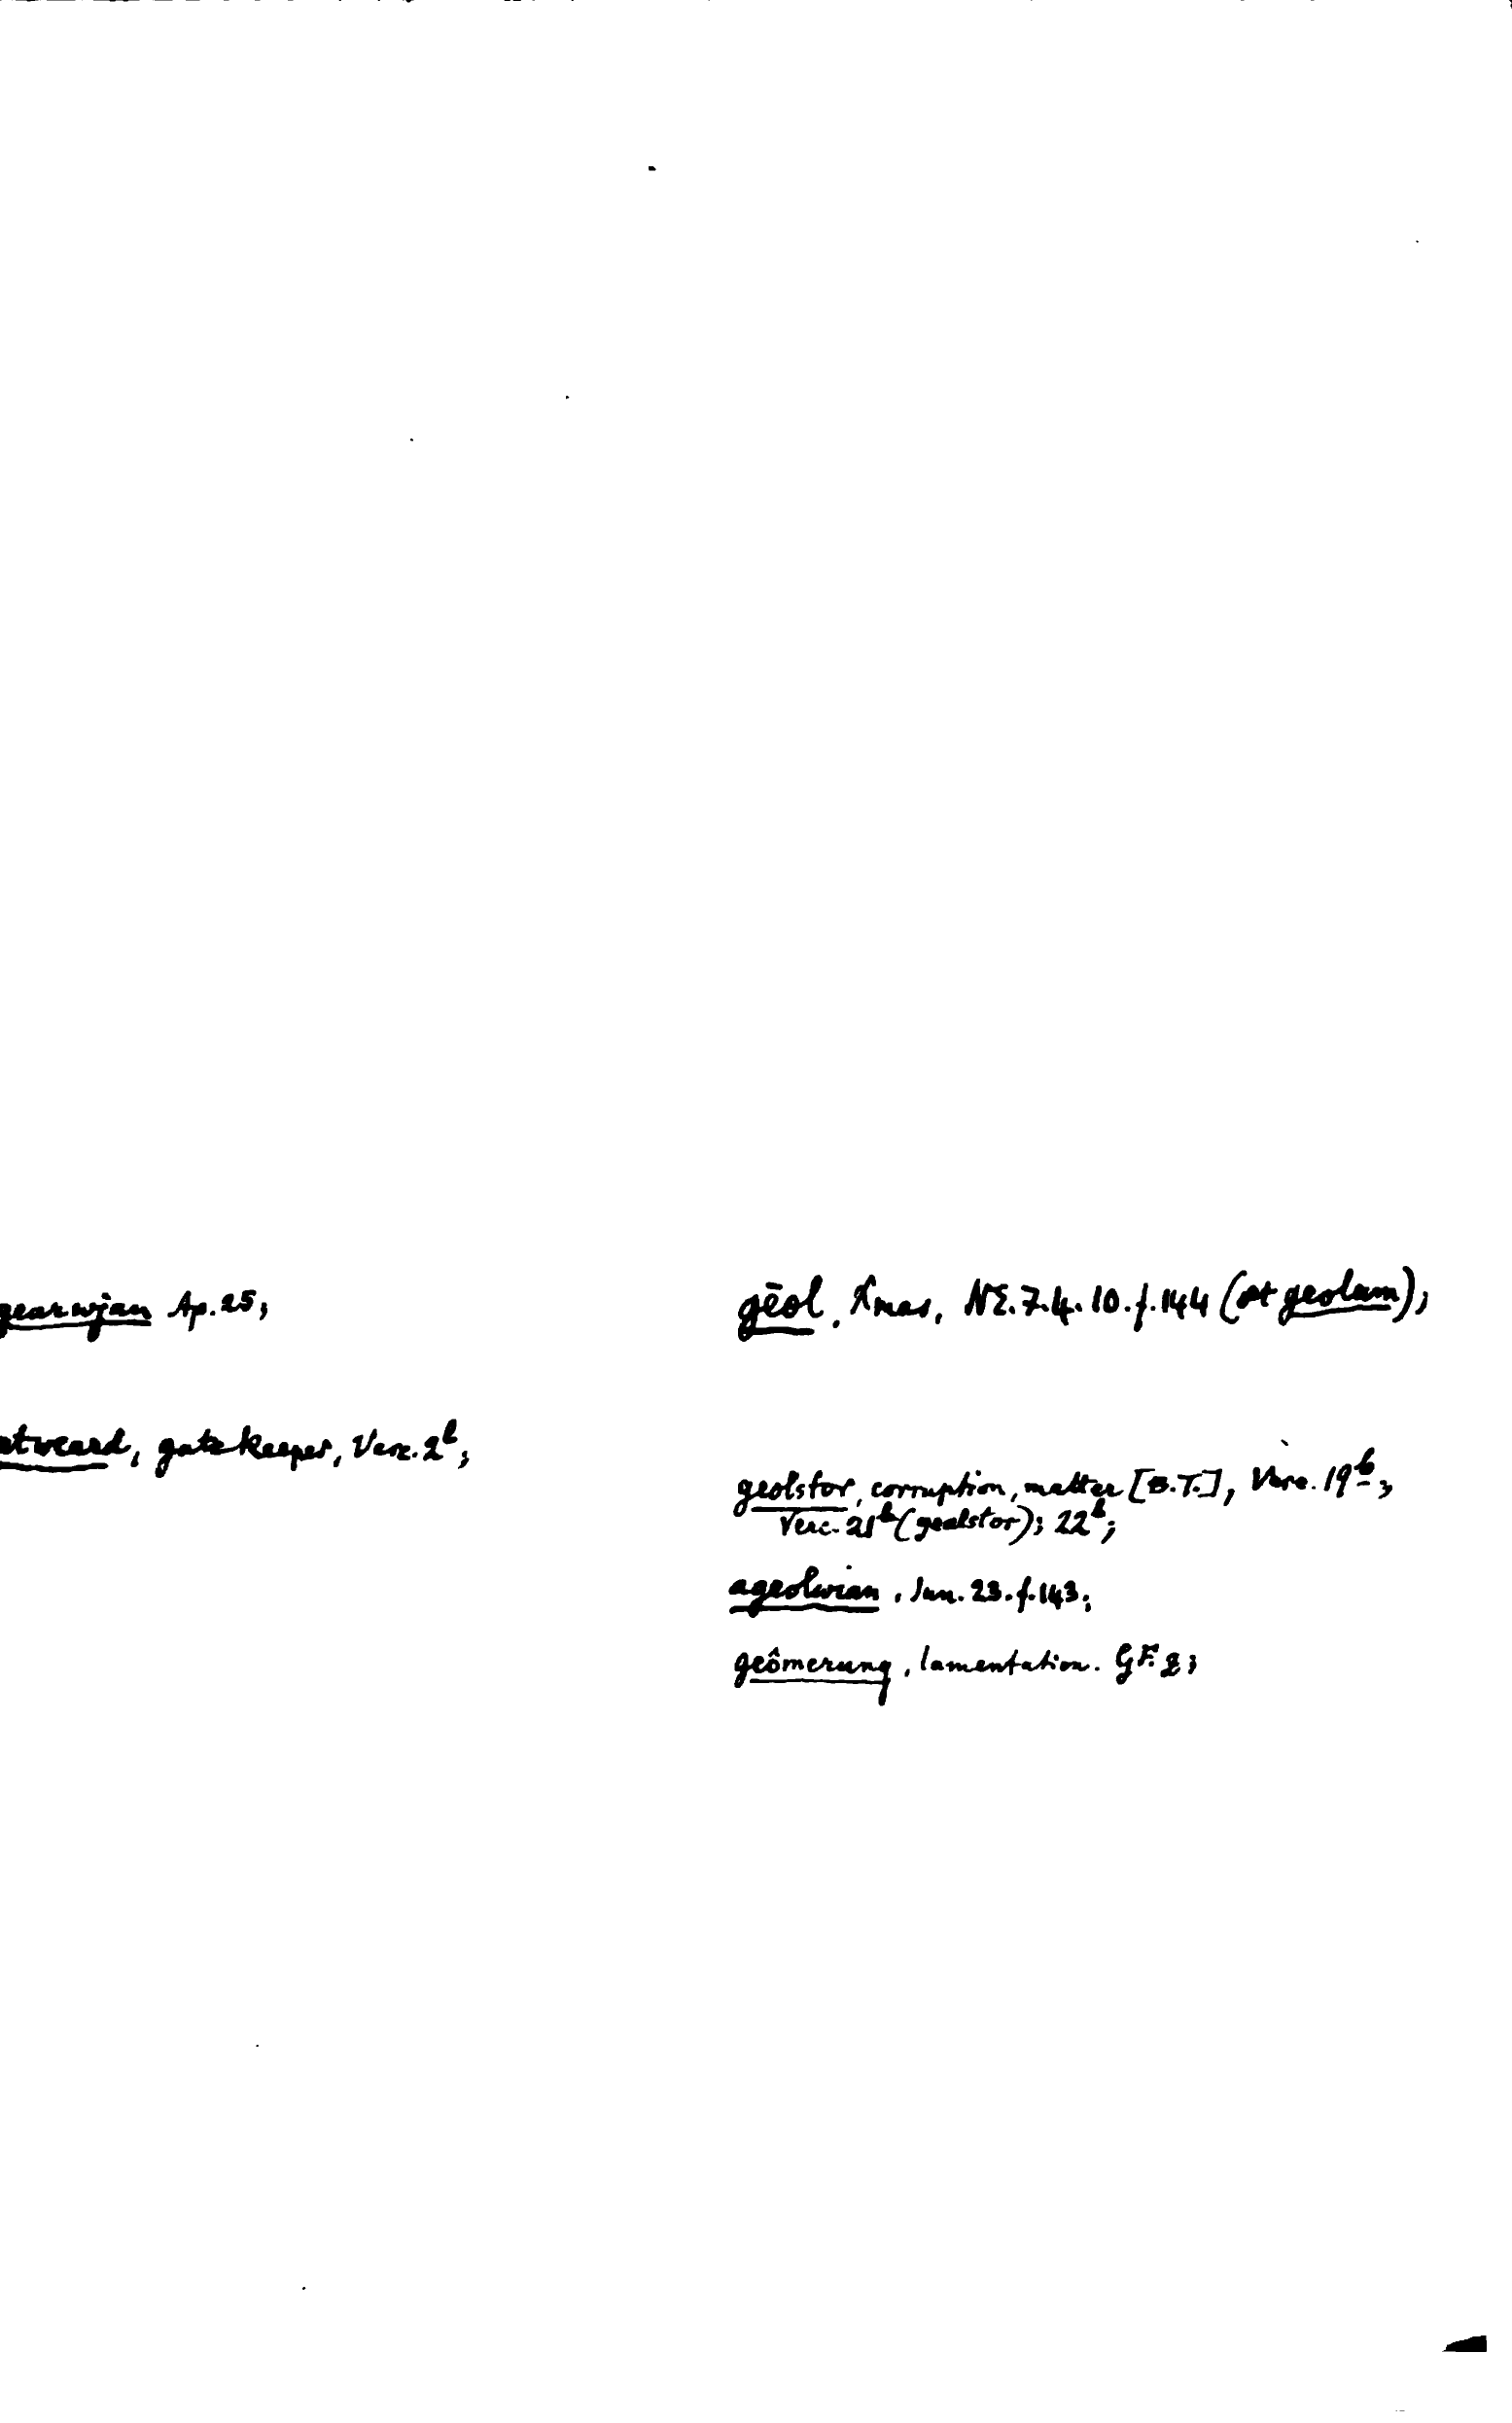 gearwian Ap. 25;
atweard, gatekeeper, Verc. 2b;
gēol, Xmas, NE. 7. 4. 10. f. 144 (æt geolam);
geolstor, corruption, matter [B.T.], Verc. 19b;
Verc. 21b (gealstor); 22b;
ageolwian, Jun. 23. f. 143;
geômerung, lamentation. GF. 2;